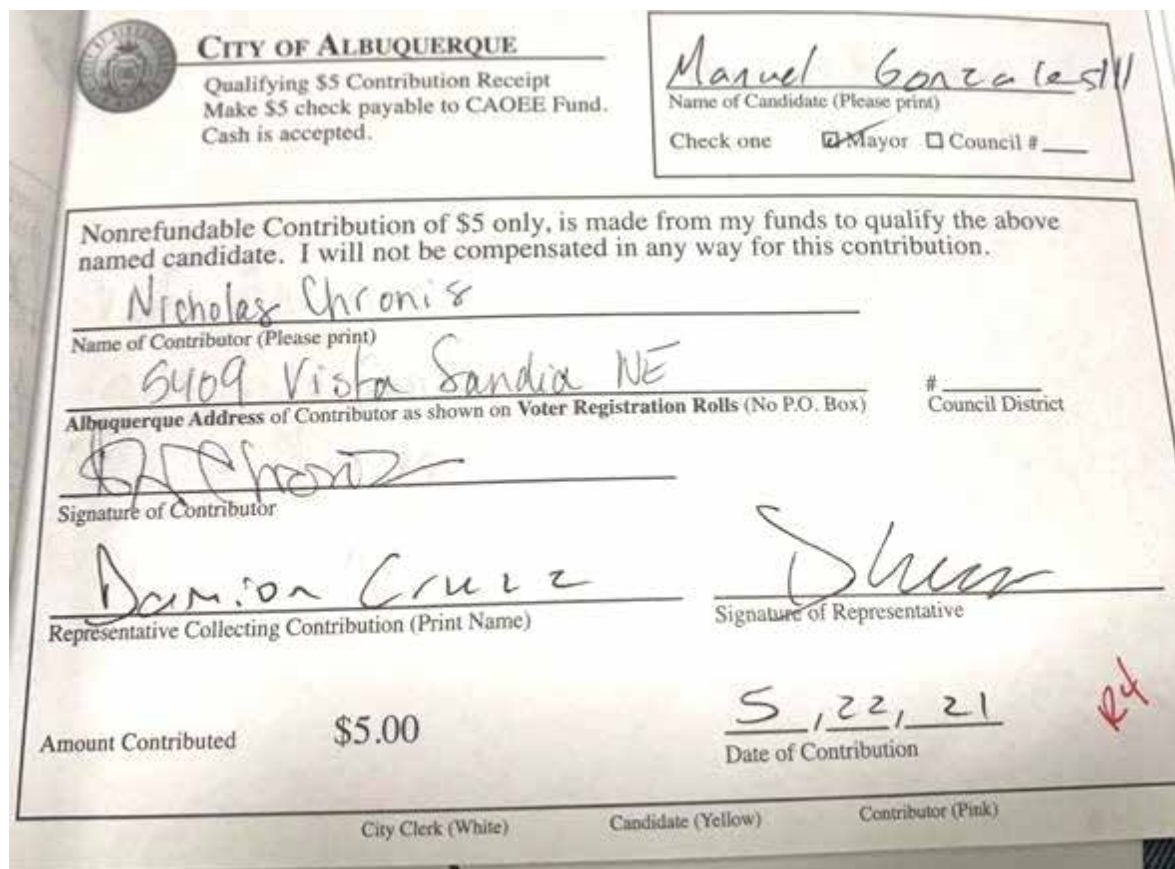 CITY OF ALBUQUERQUE
Qualifying $5 Contribution Receipt
Make $5 check payable to CAOEE Fund.
Cash is accepted.
Manuel Gonzales III
Name of Candidate (Please print)
Check one Mayor Council #
Nonrefundable Contribution of $5 only, is made from my funds to qualify the above
named candidate. I will not be compensated in any way for this contribution.
Nicholas Chronis
Name of Contributor (Please print)
5409 Vista Sandia NE
#
Albuquerque Address of Contributor as shown on Voter Registration Rolls (No P.O. Box) Council District
Signature of Contributor
Damion Cruzz
Representative Collecting Contribution (Print Name) Signature of Representative
Amount Contributed $5.00 5, 22, 21 R4
Date of Contribution
City Clerk (White) Candidate (Yellow) Contributor (Pink)